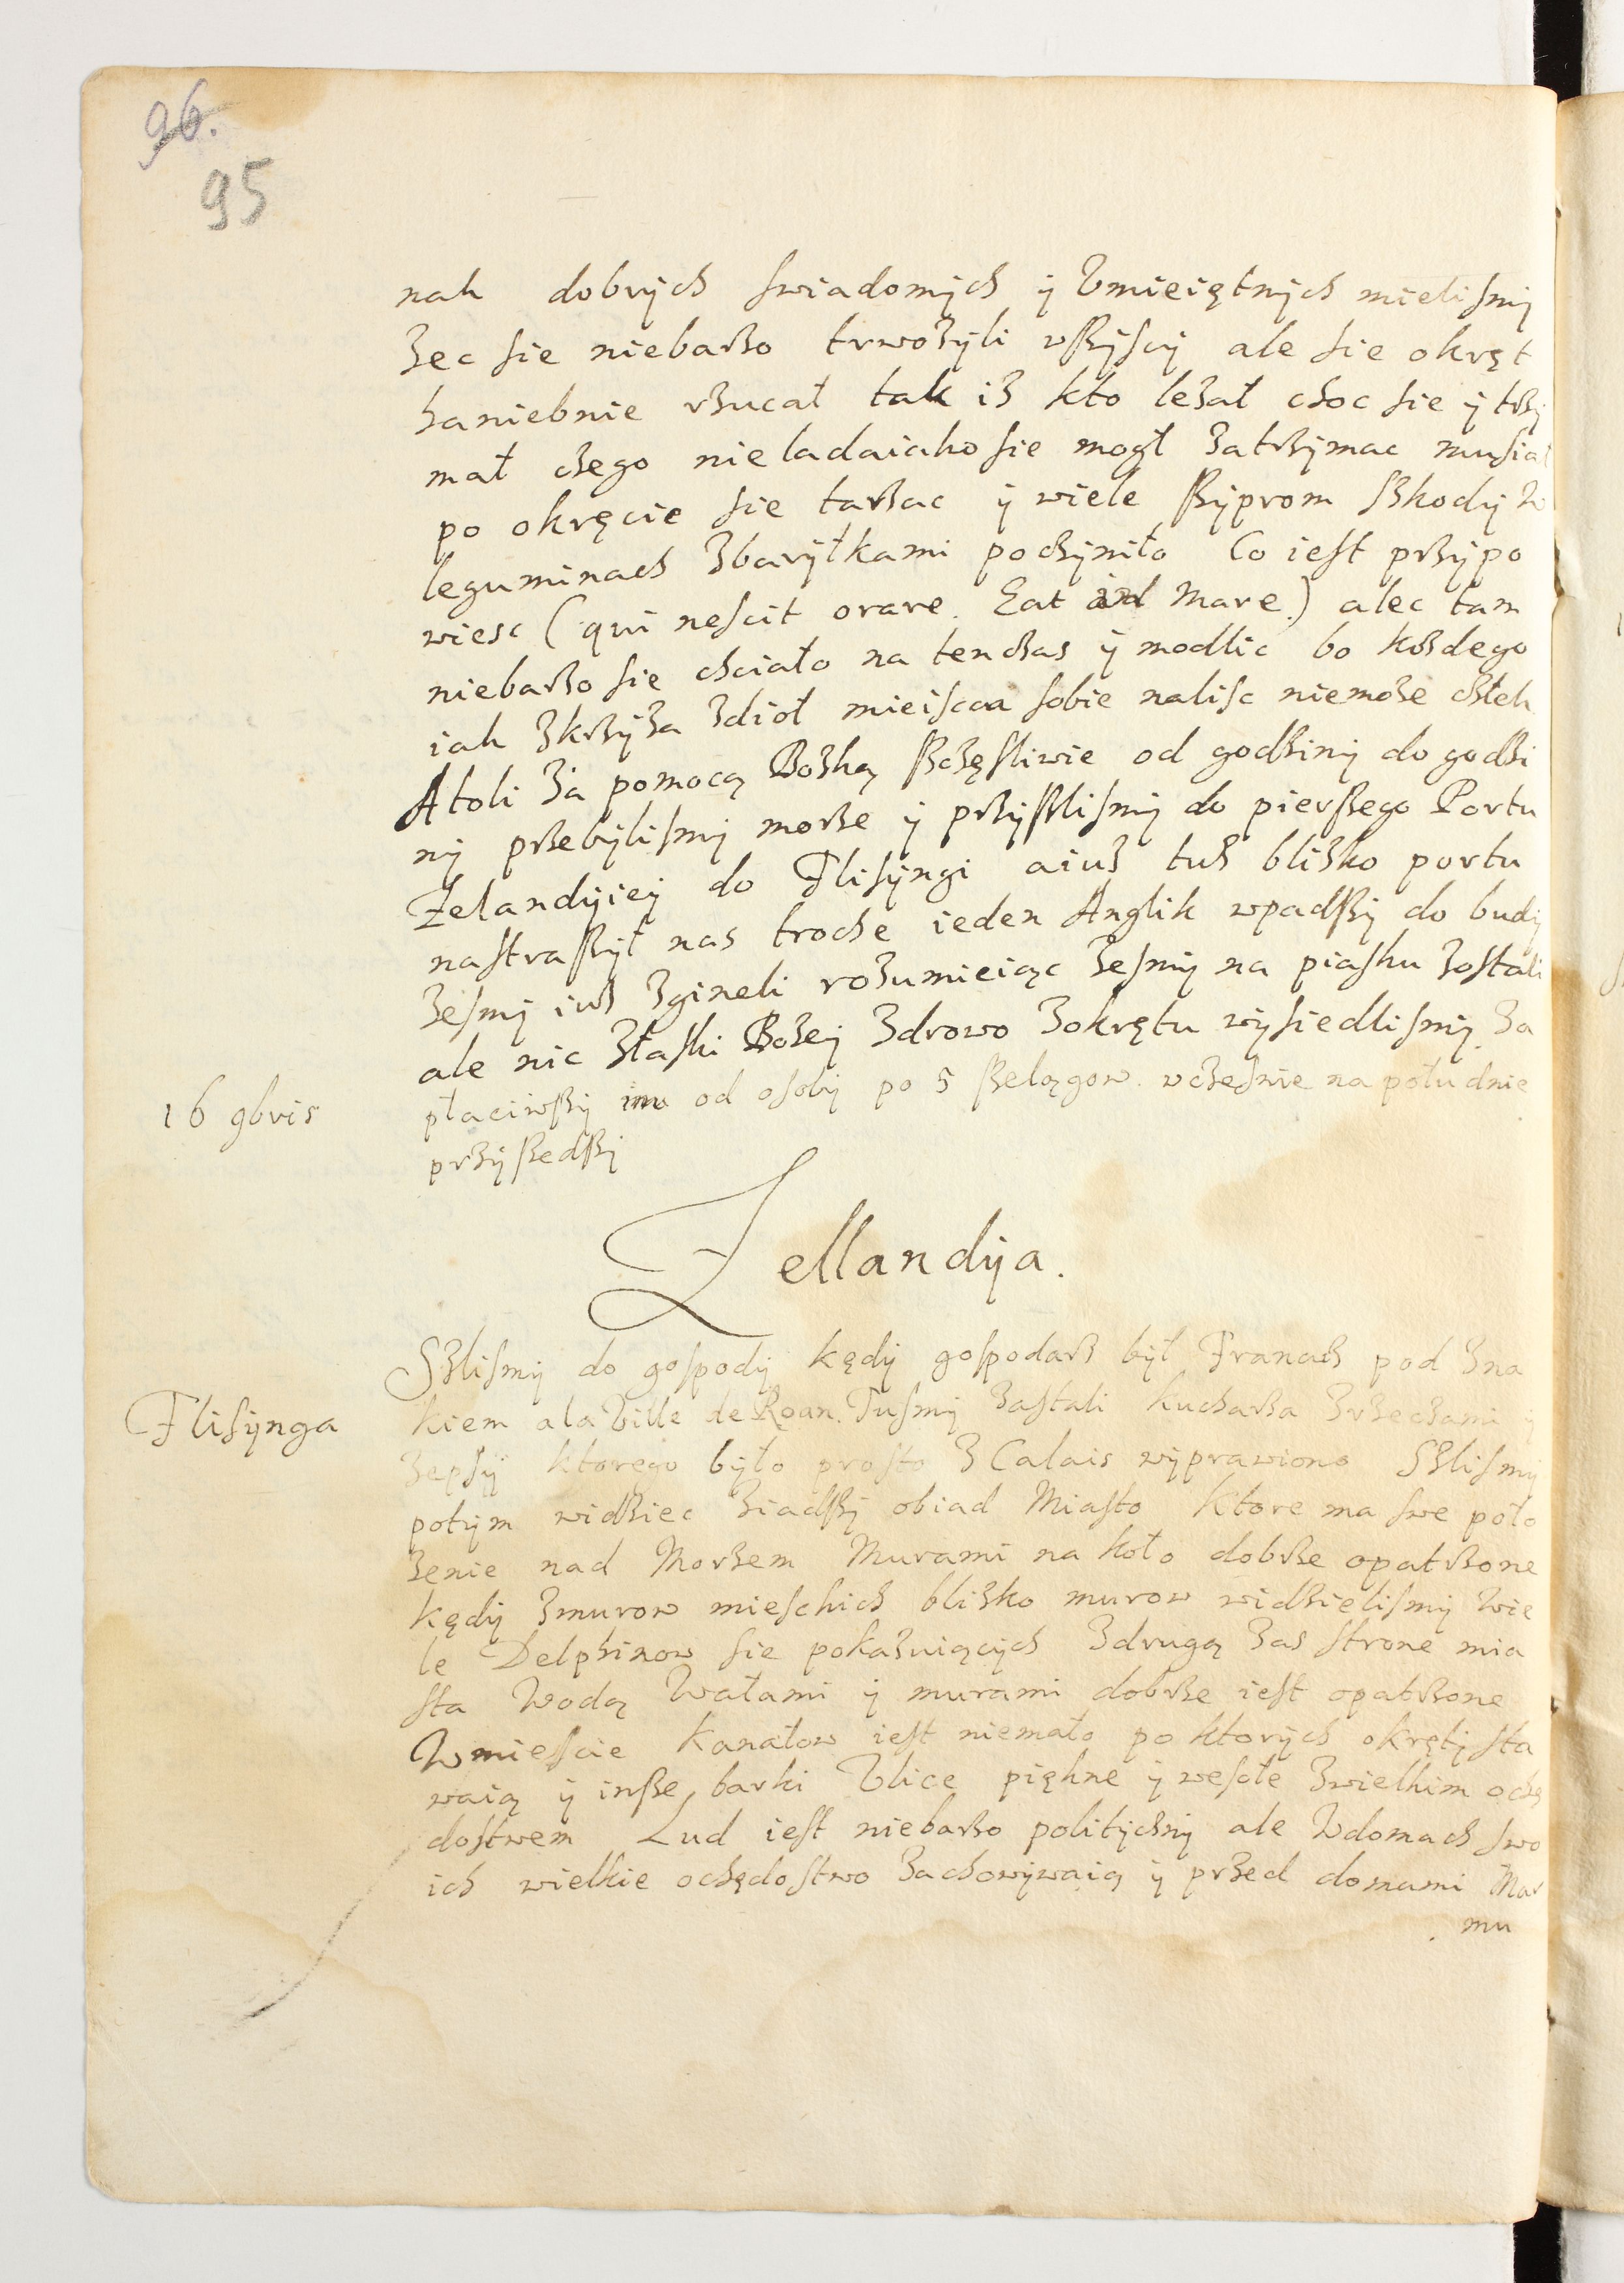 96.
95
nak dobrych swiadomych y Vmieiętnych mielismy
zec sie niebarzo trwozyli wszyscy ale sie okręt
haniebnie rzucał tak iz kto lezał choc sie y trzy
mał czego nieladaiako sie mogł zatrzymac musiał
po okręcie sie tarzac y wiele szyprom szkody w
leguminach zbaryłkami poczyniło Co iest przypo
wiesc (qui nescit orare. Eat ad Mare.) alec tam
niebarzo sie chciało na tenczas y modlic bo kozdego
iak zkrzyza zdioł mieisca sobie nalisc niemoze człek
Atoli za pomocą Bozką szczęsliwie od godziny do godzi
ny przebylismy morze y przyszlismy do pierszego Portu
Zelandyiey do Flisyngi aiuz tuz blizko portu
nastraszył nas troche ieden Anglik wpadszy do budy
zesmy iuz zgineli rozumieiąc zesmy na piasku zostali
ale nic złaski Bozey zdrowo zokrętu wysiedlismy za
16 9bris
płaciwszy od osoby po 5 szelągow. wczesnie na południe
przyszedszy
Zellandya.
Szlismy do gospody kędy gospodarz był Francuz pod zna
Flisynga
kiem ala Ville de Roan. Tusmy zastali kucharza zrzeczami y
zepsy ktorego było prosto z Calais wyprawiono Szlismy
potym widziec ziadszy obiad Miasto Ktore ma swe poło
zenie nad Morzem Murami na koło dobrze opatrzone
kędy zmurow mieskich blizko murow widzielismy wie
le Delphinow sie pokazuiących zdrugą zas strone mia
sta Wodą Wałami y murami dobrze iest opatrzone
Wmiescie kanałow iest niemało po ktorych okręty sta
waią y insze barki Vlice piękne y wesołe zwielkimochę
dostwem Lud iest niebarzo polityczny ale Wdomach swo
ich wielkie ochędostwo zachowywaią y przed domami Mar
mu